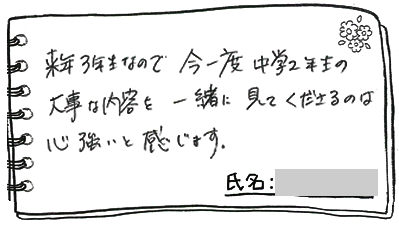 来年3年生なので 今一度 中学2年生の
大事な内容を 一緒に 見てくださるのは
心強いと感じます。
氏名: